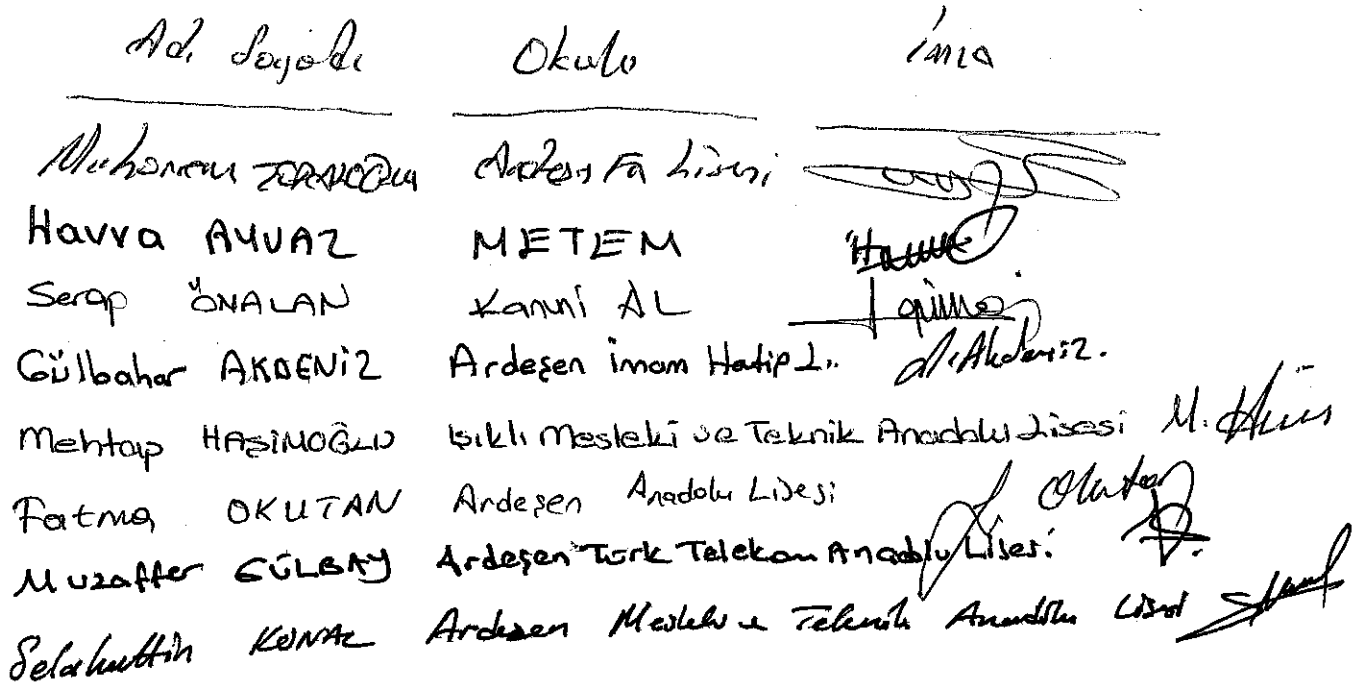 Adı Soyadı Okulu İmza
Muharrem Ardeşen Fen Lisesi
Havva AYVAZ METEM
Serap ÖNALAN Kanuni AL
Gülbahar AKDENİZ Ardeşen İmam Hatip L. Akdeniz.
Mehtap HAŞİMOĞLU Işıklı Mesleki ve Teknik Anadolu Lisesi M.
Fatma OKUTAN Ardeşen Anadolu Lisesi Okutan
Muzaffer GÜLBAY Ardeşen Türk Telekom Anadolu Lisesi.
Selahattin KONAL Ardeşen Mesleki ve Teknik Anadolu Lisesi